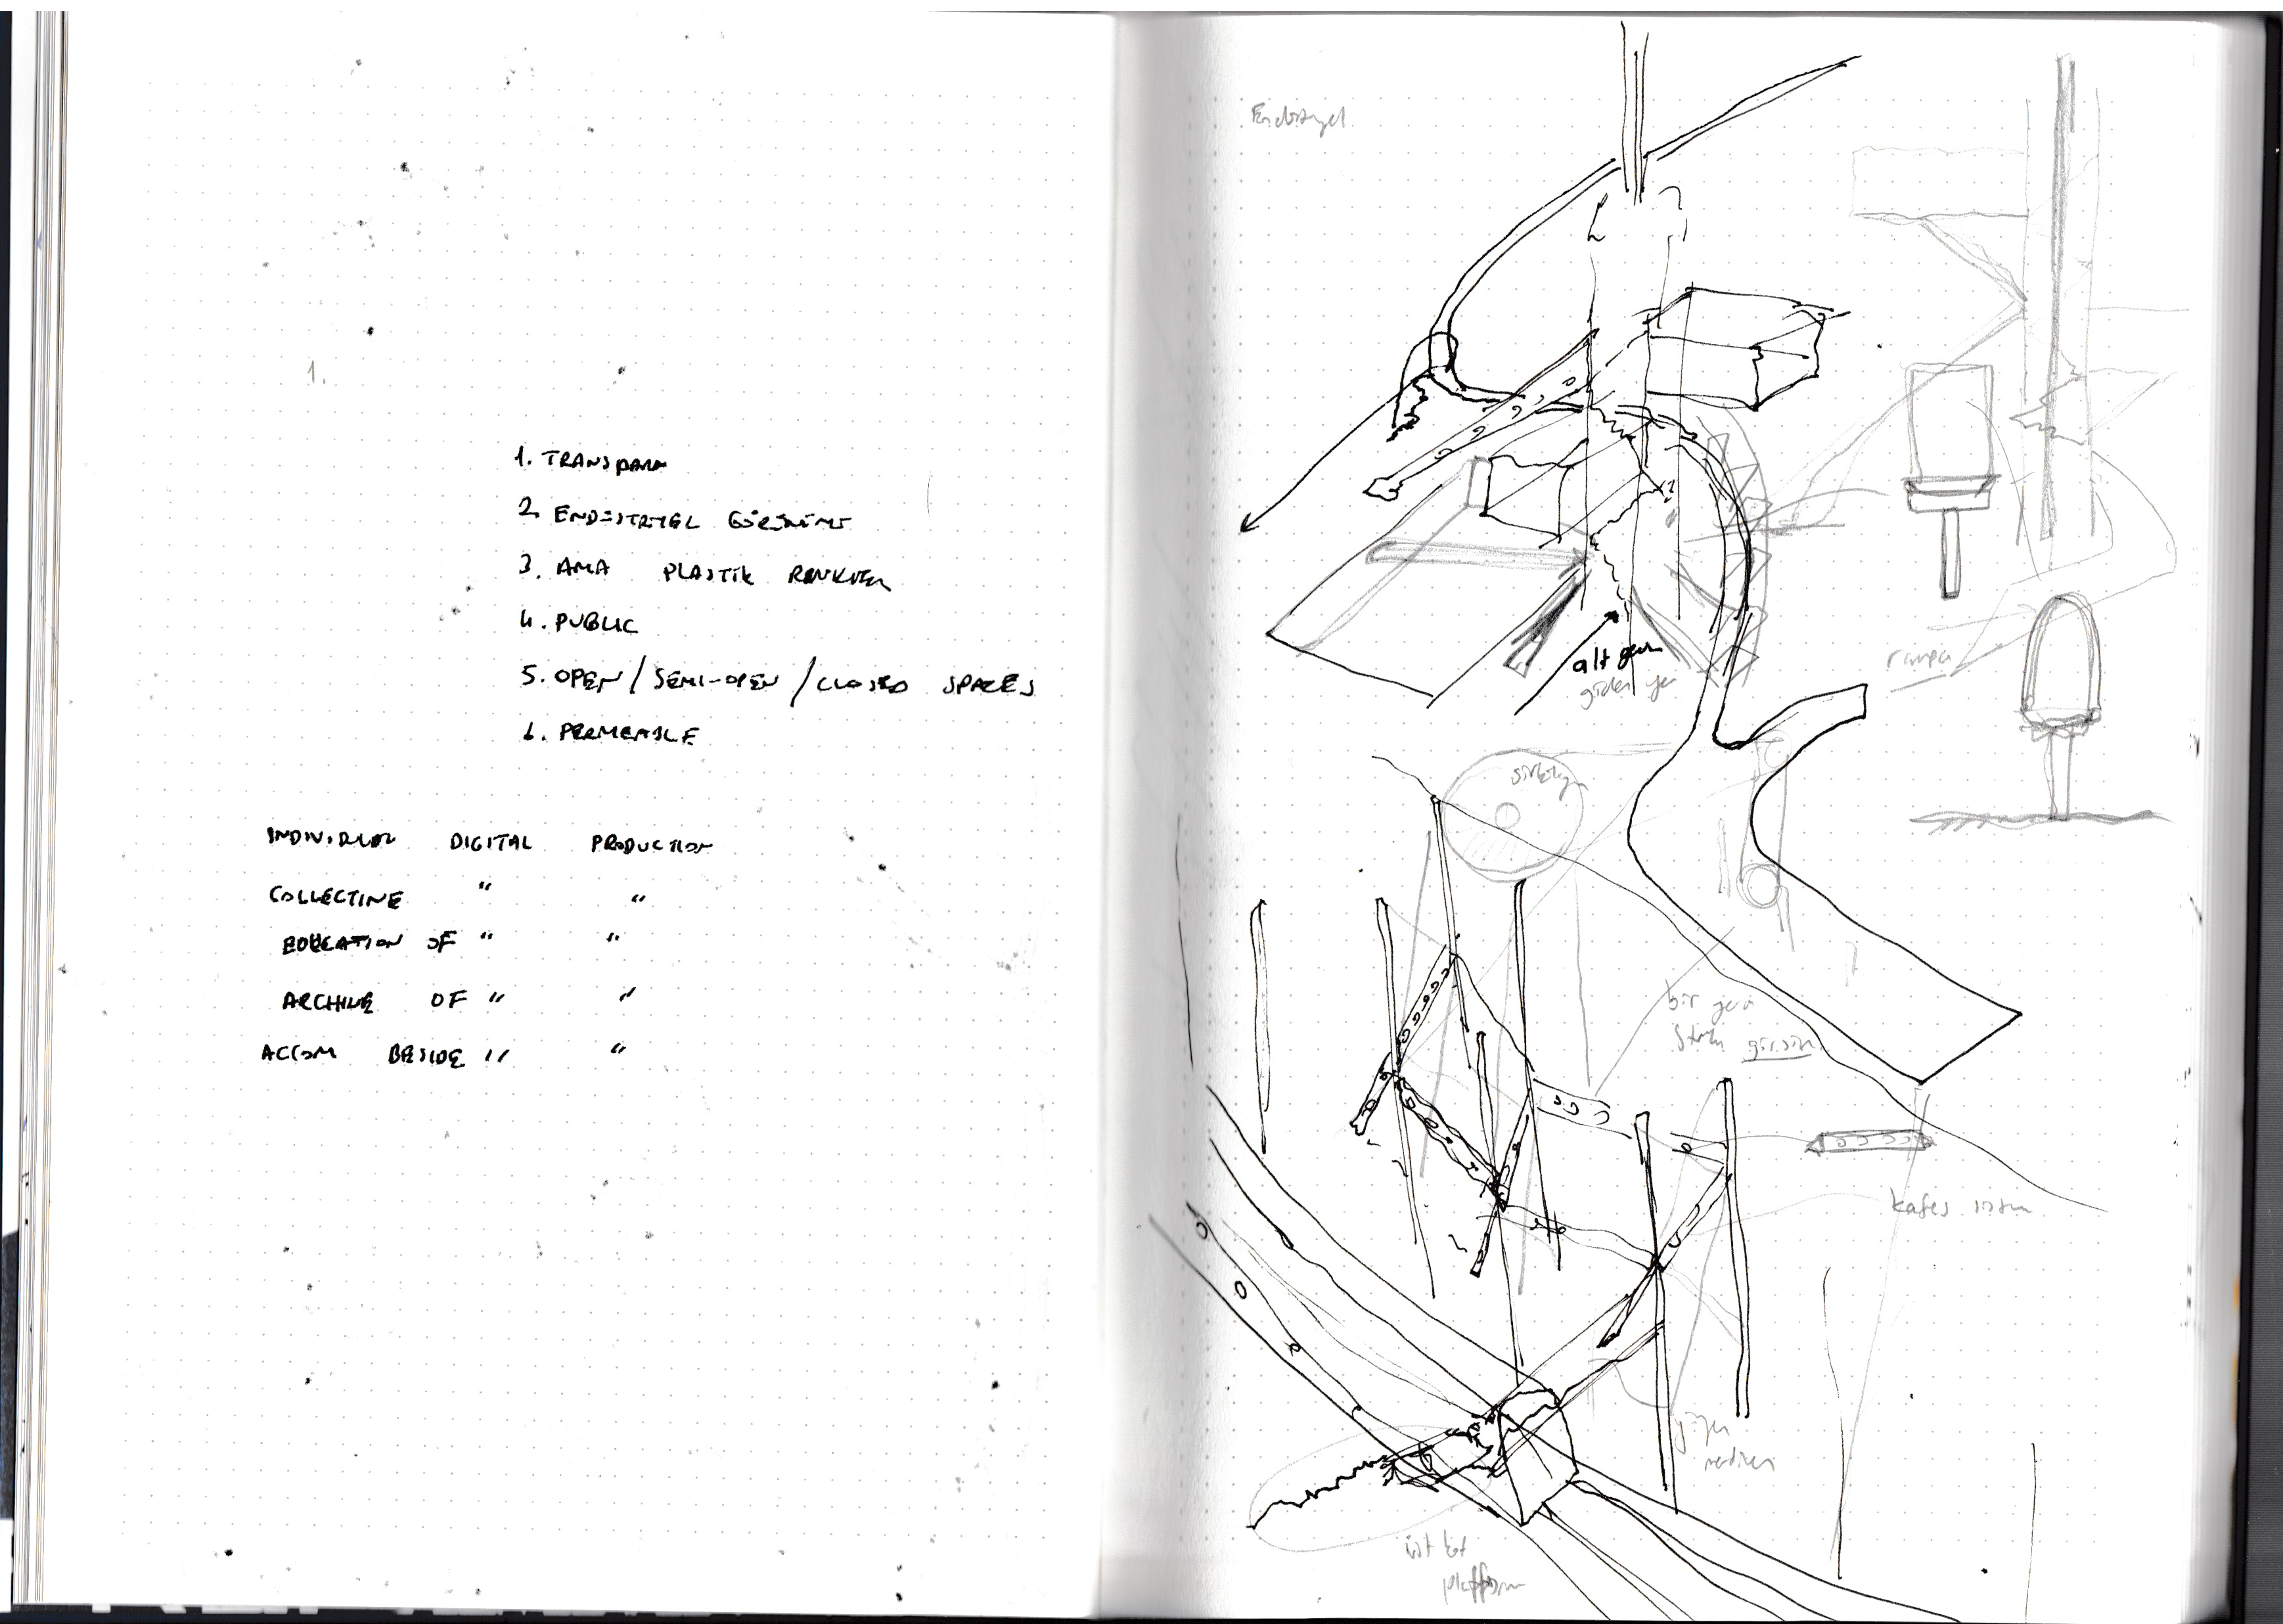 1.
1. TRANSPARAN
2. ENDÜSTRİYEL GÖRÜNÜMÜ
3. AMA PLASTİK RENKLER
4. PUBLIC
5. OPEN / SEMI-OPEN / CLOSED SPACES
6. PERMEABLE
INDIVIDUAL DIGITAL PRODUCTION
COLLECTIVE " "
EDUCATION OF " "
ARCHIVE OF " "
ACCOM BESIDE " "
Endüstriyel
alt
giden yer
rampa
sirkülasyon
bir yere
girsin
kafes sistem
merdiven
üst kat
platform